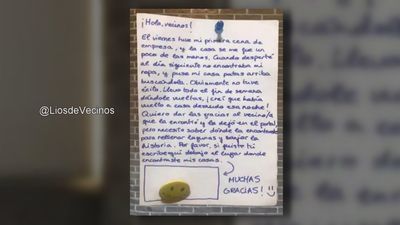 ¡Hola, vecinos!
El viernes tuve mi primera cena de
empresa, y la cosa se me fue un
poco de las manos. Cuando desperté
al día siguiente no encontraba mi
ropa, y puse mi casa patas arriba
buscándola. Obviamente no tuve
éxito. Llevo todo el fin de semana
dándole vueltas, ¿creí que había
vuelto a casa desnuda esa noche!
Quiero dar las gracias al vecino/a
que la encontró y la dejó en el portal,
pero necesito saber dónde la encontraste
para rellenar lagunas y zanjar la
historia. Por favor, si fuiste tú
escribe aquí debajo el lugar donde
encontraste mis cosas.
MUCHAS
GRACIAS!
@LiosdeVecinos